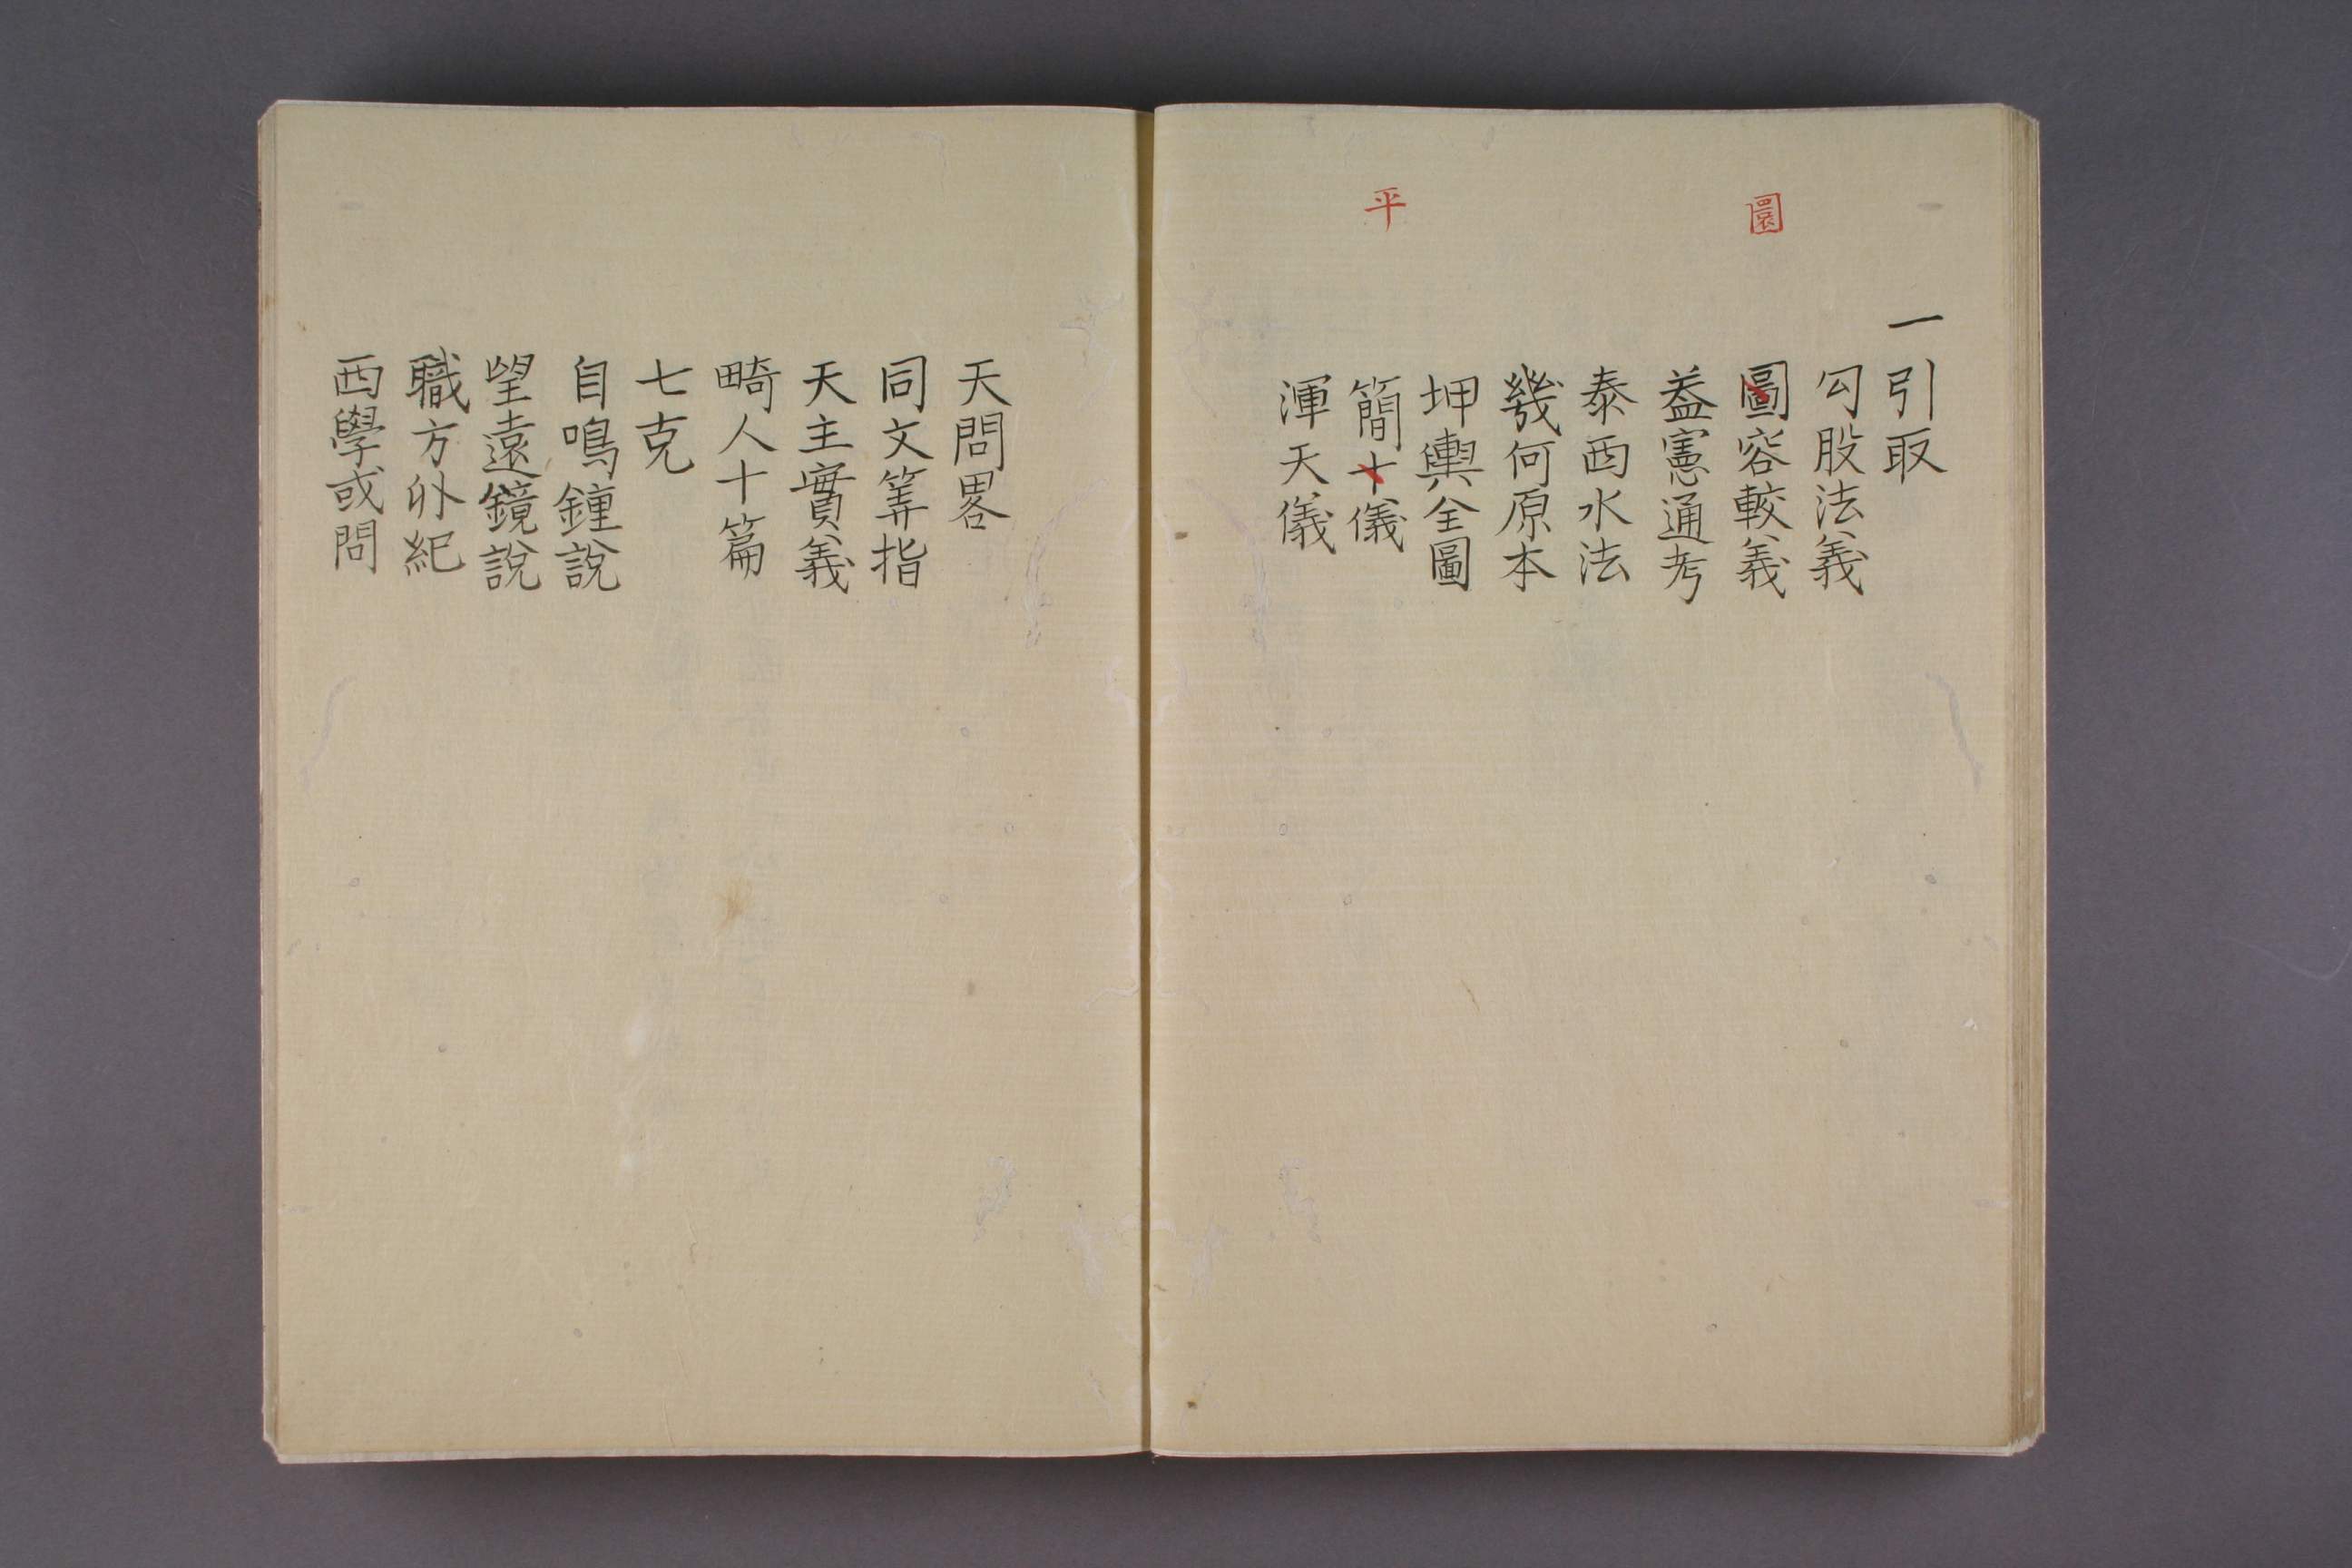 一引取
勾股法義
圜
圖容較義
葢憲通考
泰西水法
幾何原本
坤輿全圖
平
簡十儀
渾天儀
天問畧
同文筭指
天主實義
畸人十篇
七克
自鳴鐘說
望遠鏡說
職方外紀
西學或問